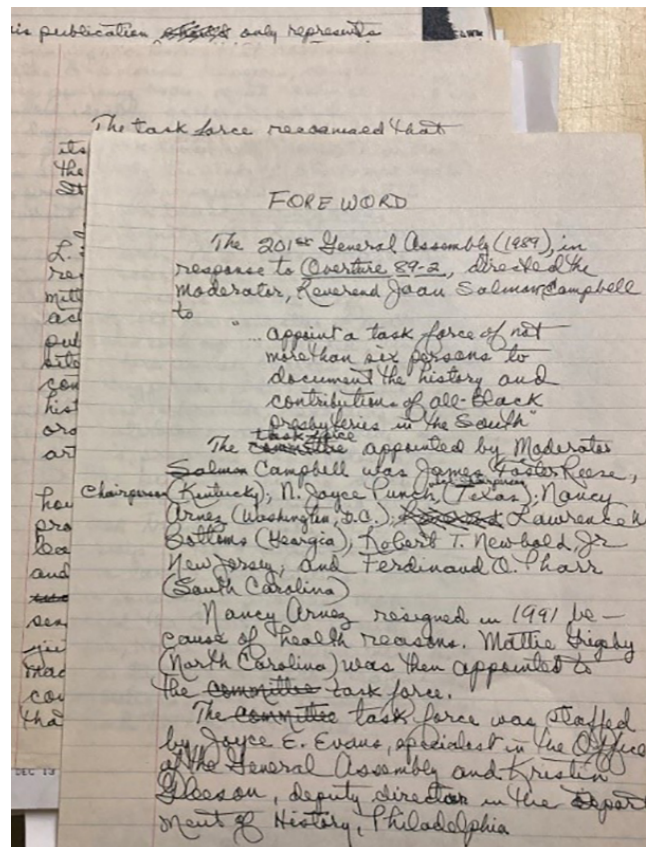 is publication only represents
The task force recognised that
its
the
FOREWORD
The 201st General Assembly (1989), in
response to Overture 89-2, directed the
Moderator, Reverend Joan Salmon Campbell
to
"... appoint a task force of not
more than six persons to
document the history and
contributions of all-Black
presbyteries in the South"
task force
The committee appointed by Moderator
Salmon Campbell was James Foster Reese,
Chairperson (Kentucky); N. Joyce Punch, (Texas); Nancy
Arnez (Washington, D.C.); Lawrence W
Bottoms (Georgia), Robert T. Newbold, Jr
New Jersey, and Ferdinand O. Pharr
(South Carolina)
Nancy Arnez resigned in 1991 be-
cause of health reasons. Mattie Grigsby
(North Carolina) was then appointed to
the committee task force.
The committee task force was staffed
by Joyce E. Evans, specialist in the Office
of the General Assembly and Kristin
Gleeson, deputy director in the Depart
ment of History, Philadelphia
L.
act
con
hist
art
and
mad
tha
DEC 13